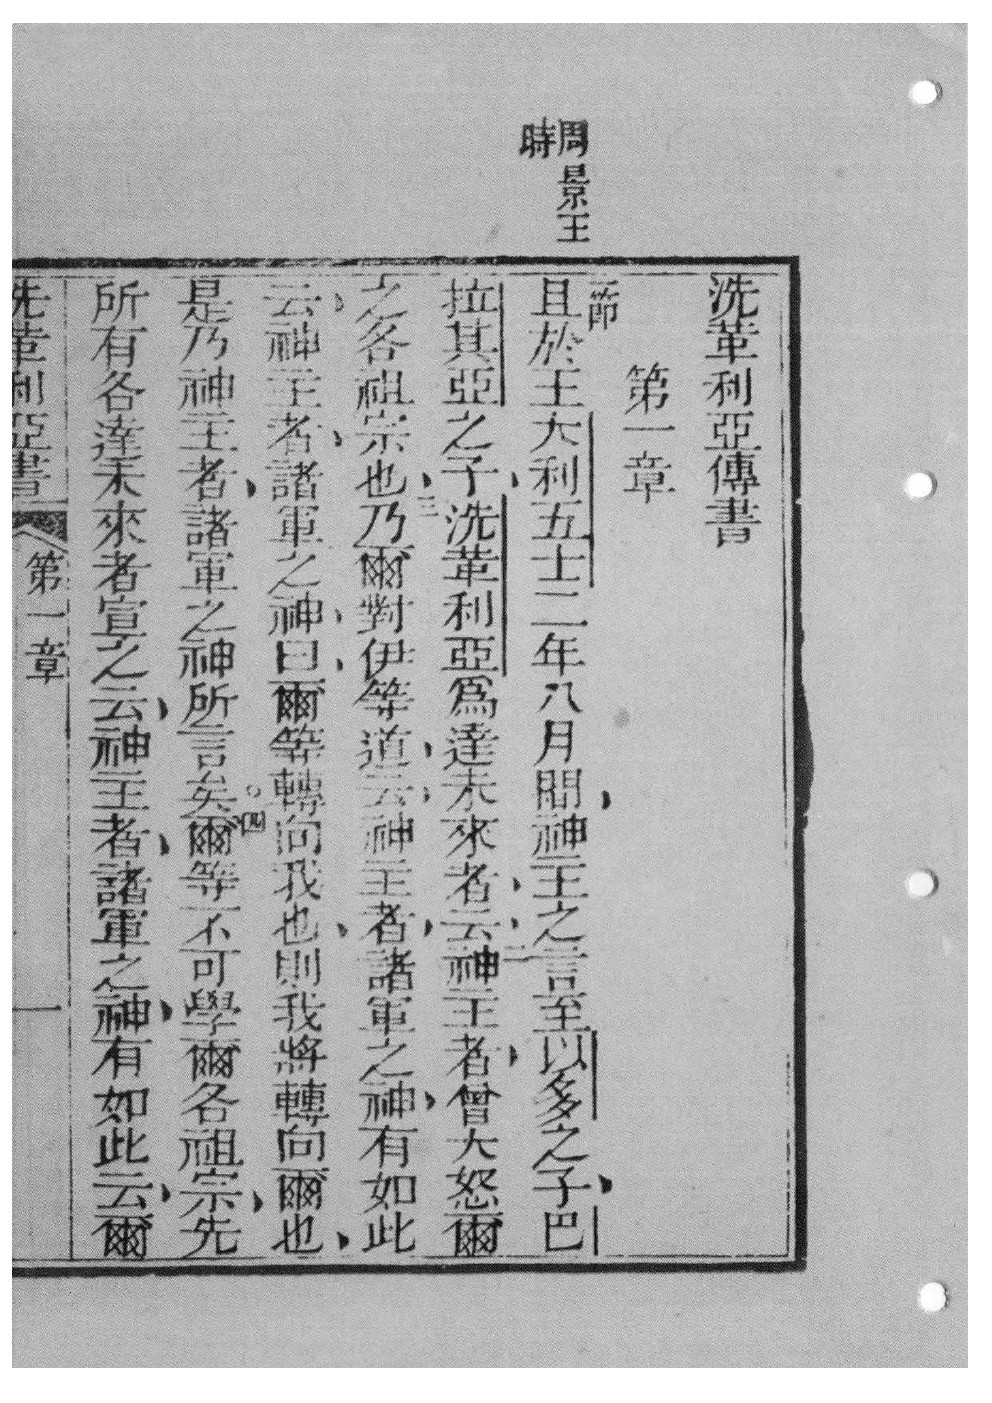 周景王
時
洗革利亞傳書
第一章
一節
且於王大利五士二年八月間神王之言至以多之子巴
拉其亞之子洗革利亞爲達未來者云二神王者曾大怒爾
之各祖宗也三乃爾對伊等道云神主者諸軍之神有如此
云神主者諸軍之神曰爾等轉向我也則我將轉向爾也
是乃神主者諸軍之神所言矣。四爾等不可學爾各祖宗先
所有各達未來者宣之云神主者諸軍之神有如此云爾
洗革利亞書 第一章 一